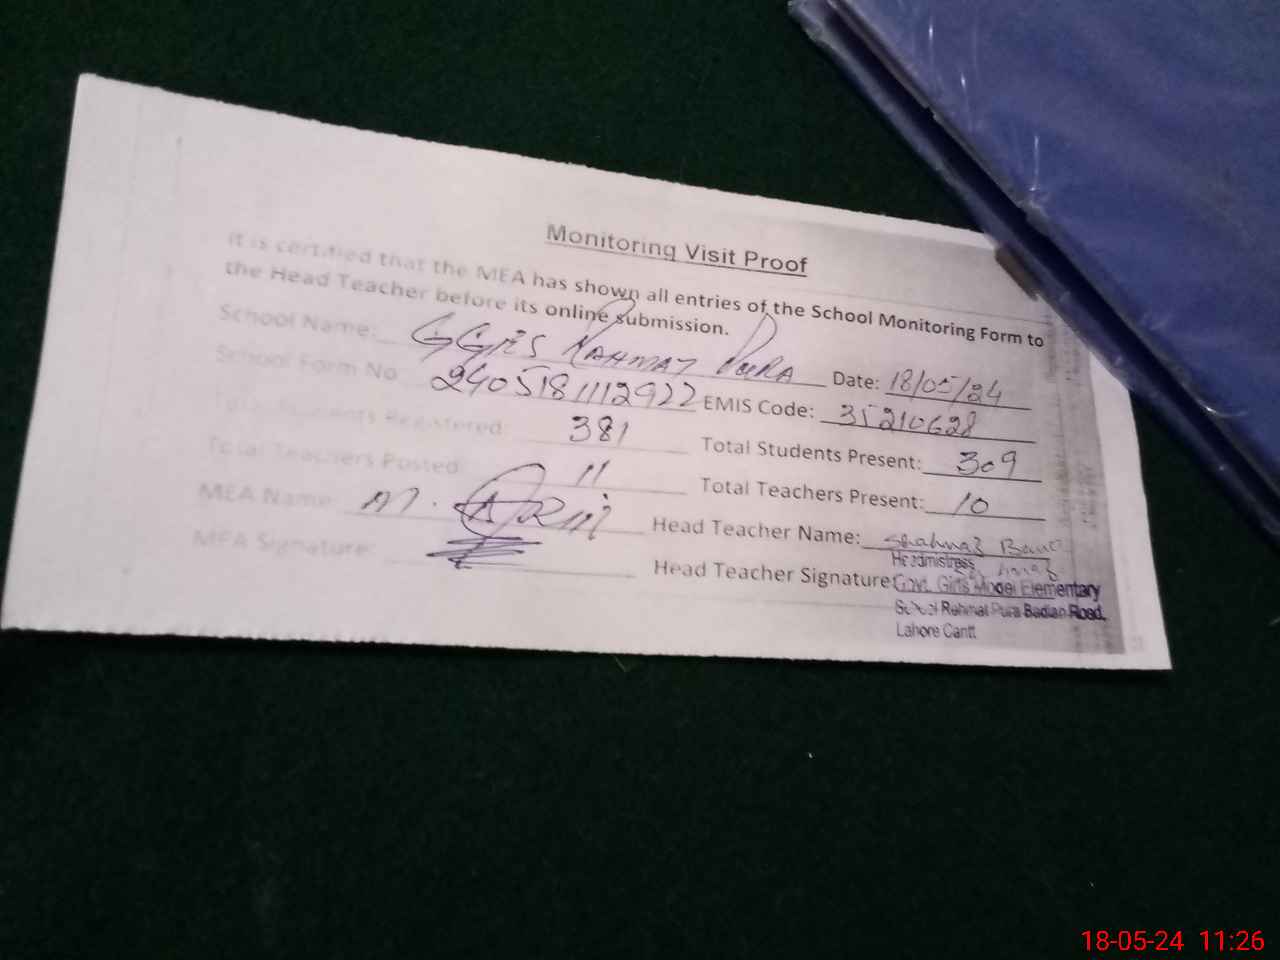 Monitoring Visit Proof
It is certified that the MEA has shown all entries of the School Monitoring Form to
the Head Teacher before its online submission.
School Name: GGES RAHMAT PURA Date: 18/05/24
School Form No 2405181112922 EMIS Code: 35210628
Total Students Registered: 381 Total Students Present: 309
Total Teachers Posted: 11 Total Teachers Present: 10
MEA Name: M. Head Teacher Name: Shahnaz Bano
MEA Signature: Head Teacher Signature:
Headmistress
Govt. Girls Model Elementary
School Rehmat Pura Badian Road,
Lahore Cantt
18-05-24 11:26